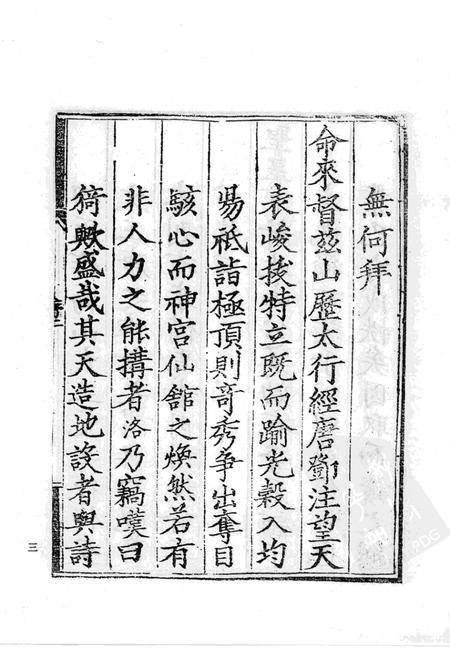 無何拜
命來督茲山歷太行經唐鄧注望天
表峻拔特立既而踰光穀入均
昜祗詣極頂則竒秀争出奪目
駭心而神宫仙舘之煥然若有
非人力之能搆者洛乃竊嘆曰
猗歟盛哉其天造地設者與詩
三
PDG